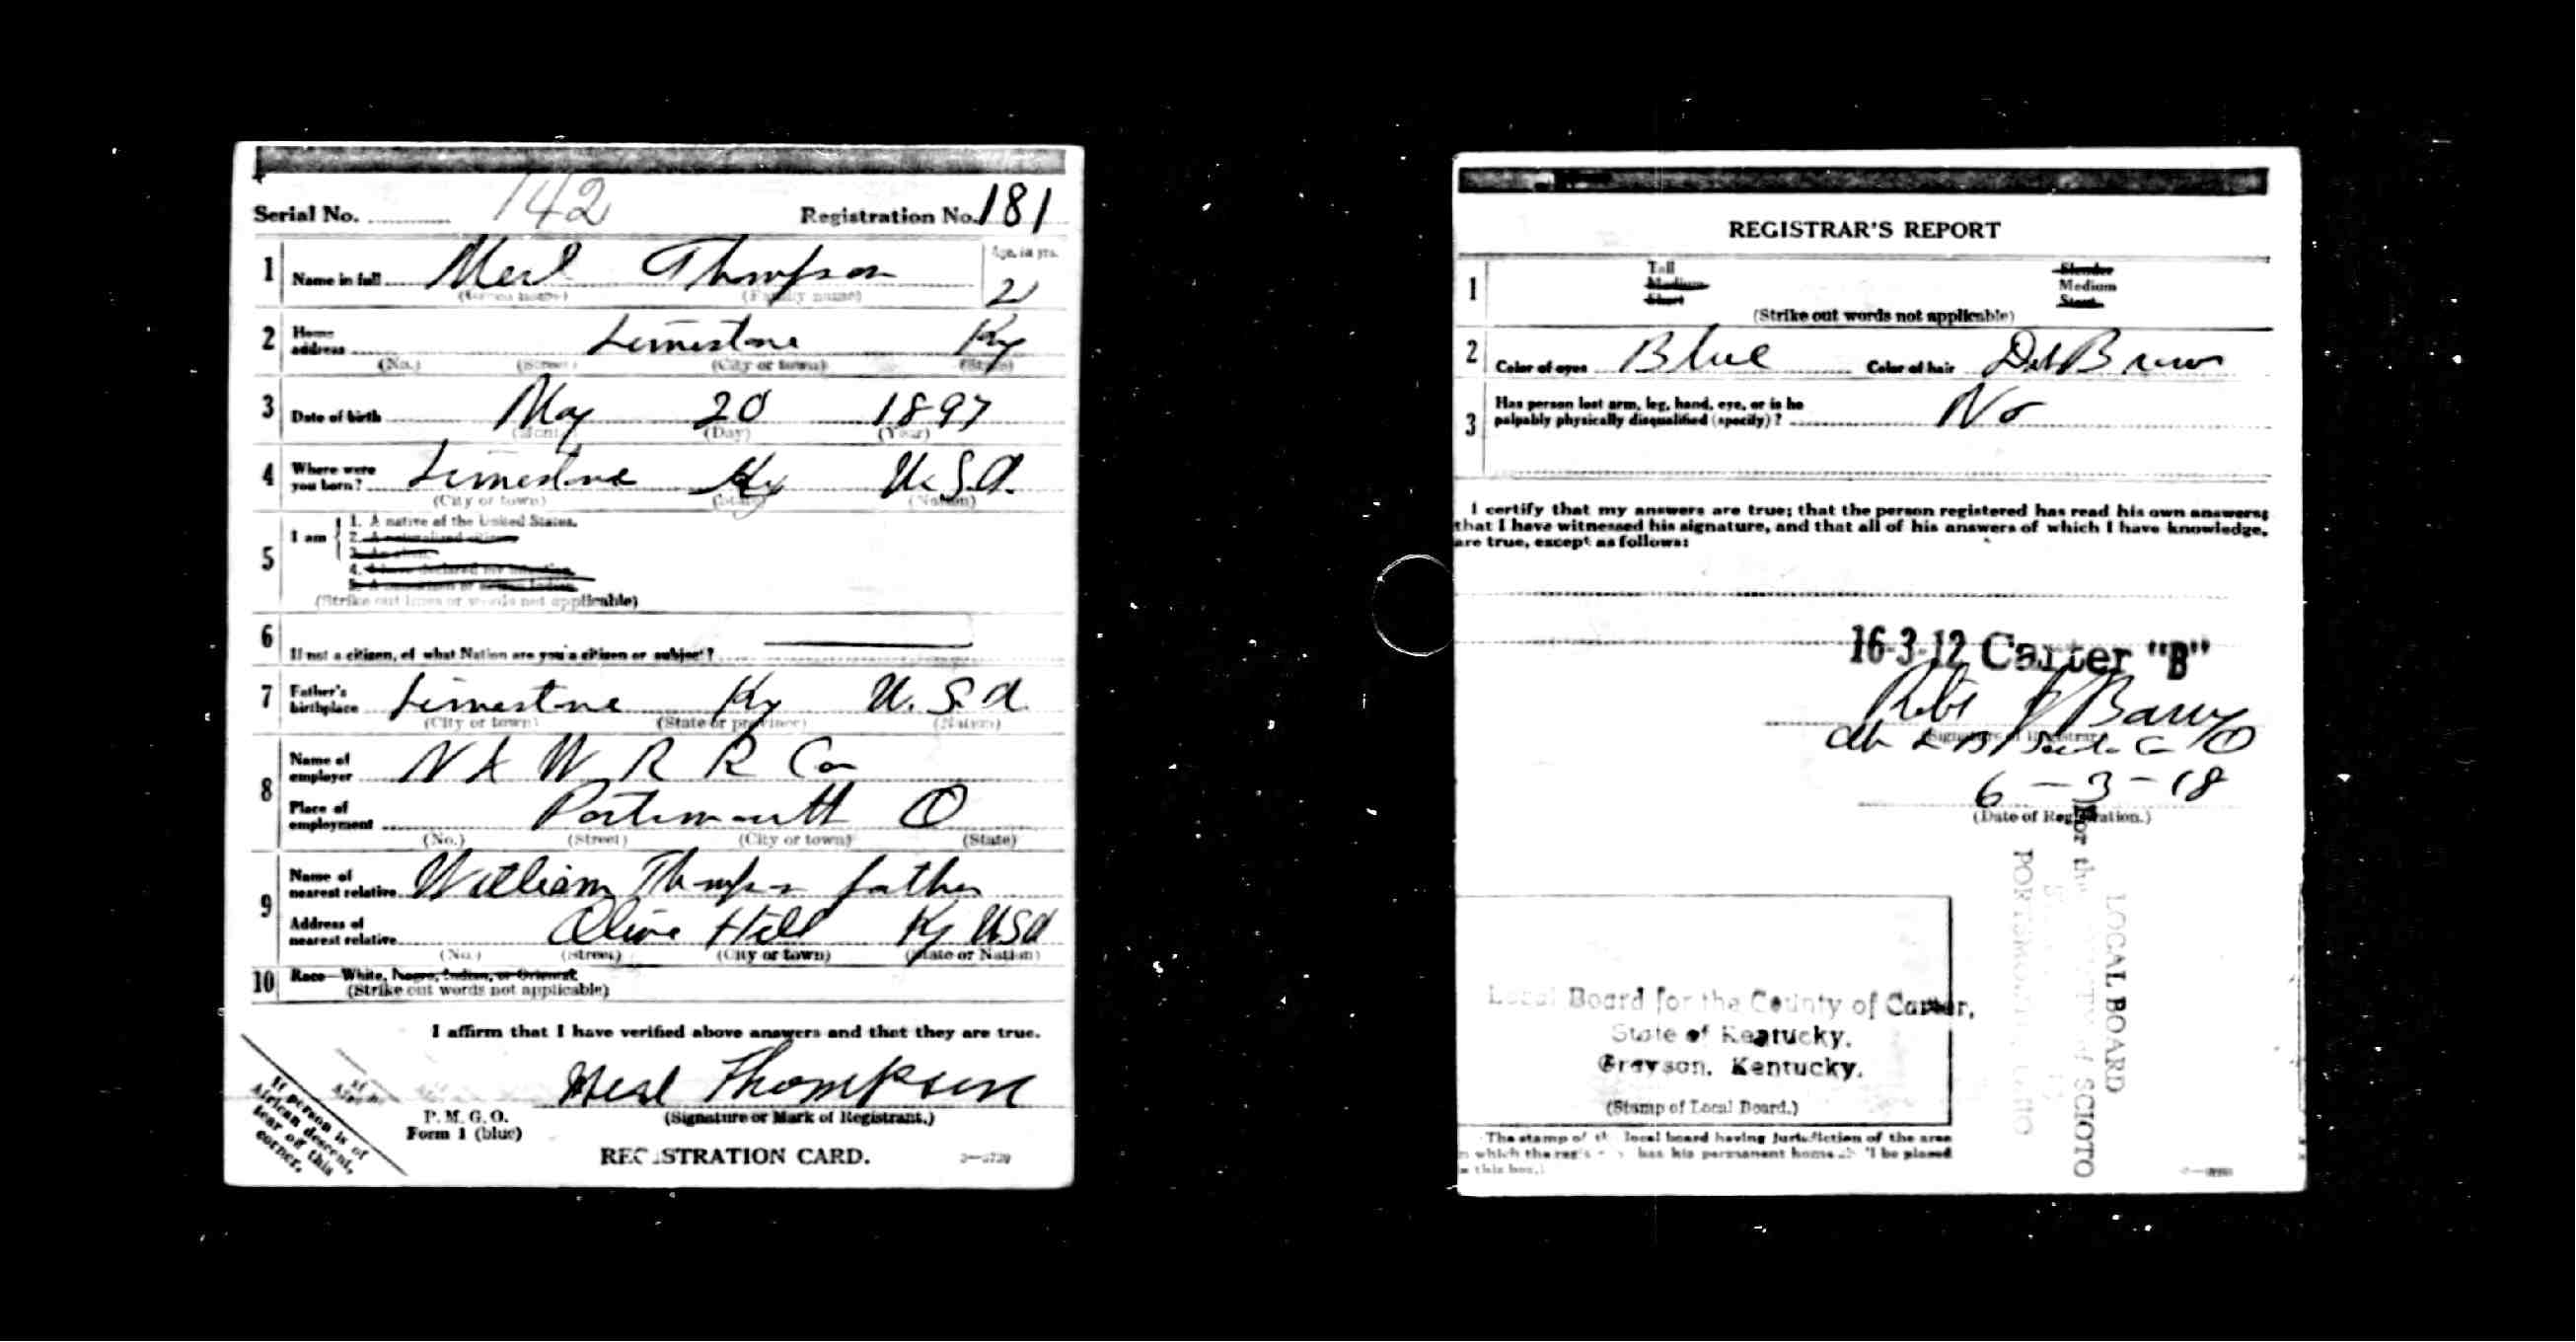 Serial No. 142 Registration No. 181
1 Name in full Merl Thompson Age, in yrs.
(Given name) (Family name) 21
2 Home address Limestone Ky
(No.) (Street) (City or town) (State)
3 Date of birth May 20 1897
(Month) (Day) (Year)
4 Where were you born? Limestone Ky U.S.A.
(City or town) (State) (Nation)
5 I am
1. A native of the United States.
2. A naturalized citizen
3. An alien.
4. I have declared my intention
5. A noncitizen or citizen Indian.
(Strike out lines or words not applicable)
6 If not a citizen, of what Nation are you a citizen or subject?
7 Father's birthplace Limestone Ky U.S.A.
(City or town) (State or province) (Nation)
8 Name of employer N & W R R Co
Place of employment Portsmouth O
(No.) (Street) (City or town) (State)
9 Name of nearest relative William Thompson father
Address of nearest relative Olive Hill Ky USA
(No.) (Street) (City or town) (State or Nation)
10 Race—White, Negro, Indian, or Oriental
(Strike out words not applicable)
I affirm that I have verified above answers and that they are true.
Merl Thompson
(Signature or Mark of Registrant.)
P. M. G. O.
Form 1 (blue)
REGISTRATION CARD.
If person is of
African descent,
tear off this
corner.
REGISTRAR'S REPORT
1 Tall Slender
Medium Medium
Short Stout
(Strike out words not applicable)
2 Color of eyes Blue Color of hair Dk Brown
3 Has person lost arm, leg, hand, eye, or is he
palpably physically disqualified (specify)? No
I certify that my answers are true; that the person registered has read his own answers;
that I have witnessed his signature, and that all of his answers of which I have knowledge,
are true, except as follows:
16-3-12 Carter "B"
(Signature of Registrar)
6-3-18
(Date of Registration.)
LOCAL BOARD
For the COUNTY of SCIOTO
PORTSMOUTH, OHIO
Local Board for the County of Carter,
State of Kentucky.
Grayson, Kentucky.
(Stamp of Local Board.)
The stamp of the local board having jurisdiction of the area
in which the registrant has his permanent home shall be placed
in this box.)